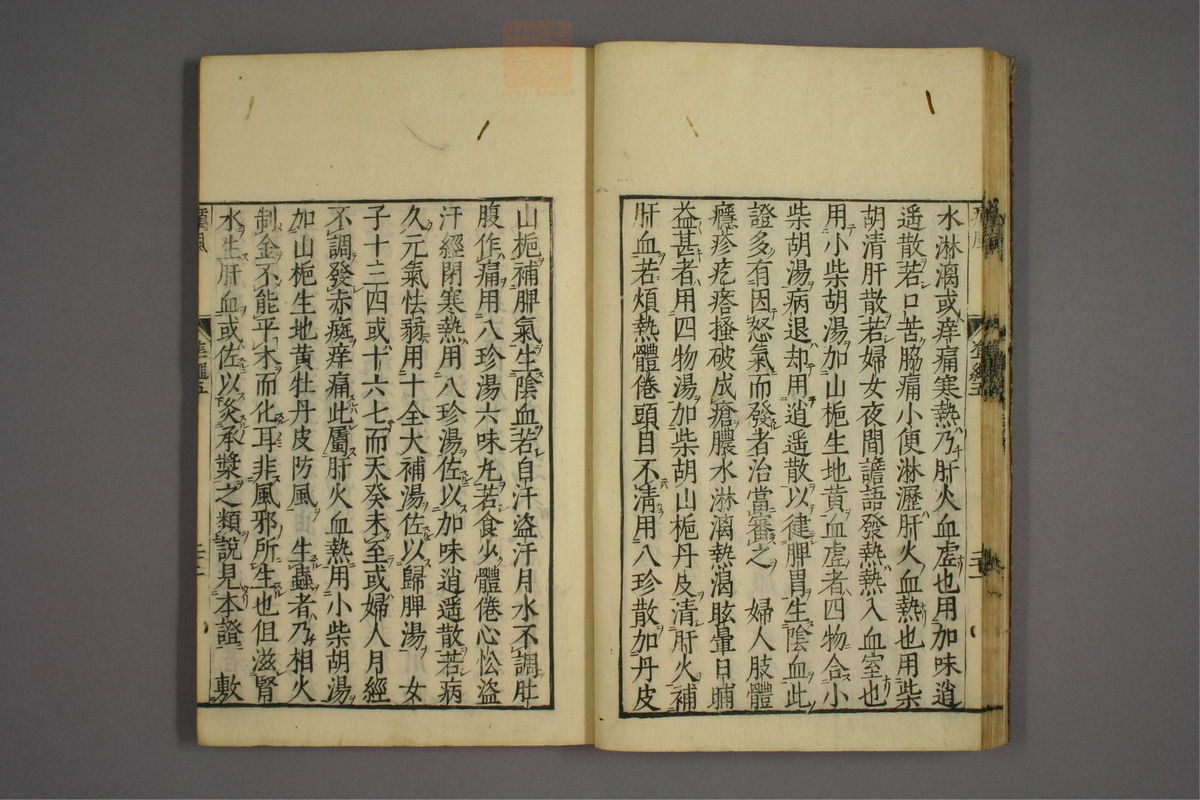 水淋漓或痒痛寒熱乃肝火血虛也用加味逍
遥散若口苦脇痛小便淋瀝肝火血熱也用柴
胡清肝散若婦女夜間譫語發熱熱入血室也
用小柴胡湯加山梔生地黄血虛者四物合小
柴胡湯病退却用逍遥散以健脾胃生陰血此
證多有因怒氣而發者治當審之　婦人肢體
癮疹疙瘩搔破成瘡膿水淋漓熱渴眩暈日晡
益甚者用四物湯加柴胡山梔丹皮清肝火補
肝血若煩熱體倦頭目不清用八珍散加丹皮
山梔補脾氣生陰血若自汗盜汗月水不調肚
腹作痛用八珍湯六味丸若食少體倦心忪盜
汗經閉寒熱用八珍湯佐以加味逍遥散若病
久元氣怯弱用十全大補湯佐以歸脾湯　女
子十三四或十六七而天癸未至或婦人月經
不調發赤癍痒痛此屬肝火血熱用小柴胡湯
加山梔生地黄牡丹皮防風　生蟲者乃相火
制金不能平木而化耳非風邪所生也但滋腎
水生肝血或佐以炙承漿之類說見本證　敷